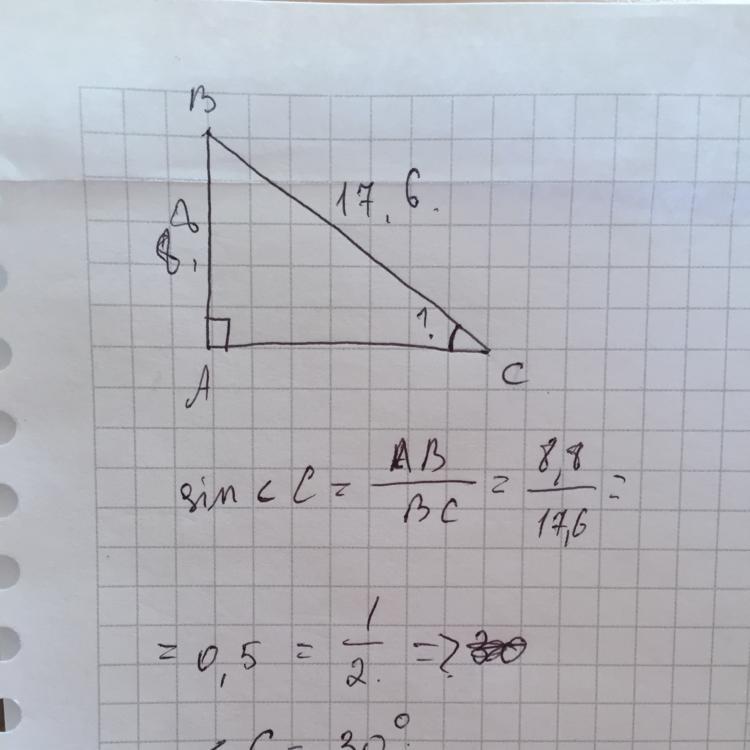 B
17,6.
8,8
?
A
C
sin < C = AB/BC = 8,8/17,6 =
= 0,5 = 1/2. =>
< C = 30°